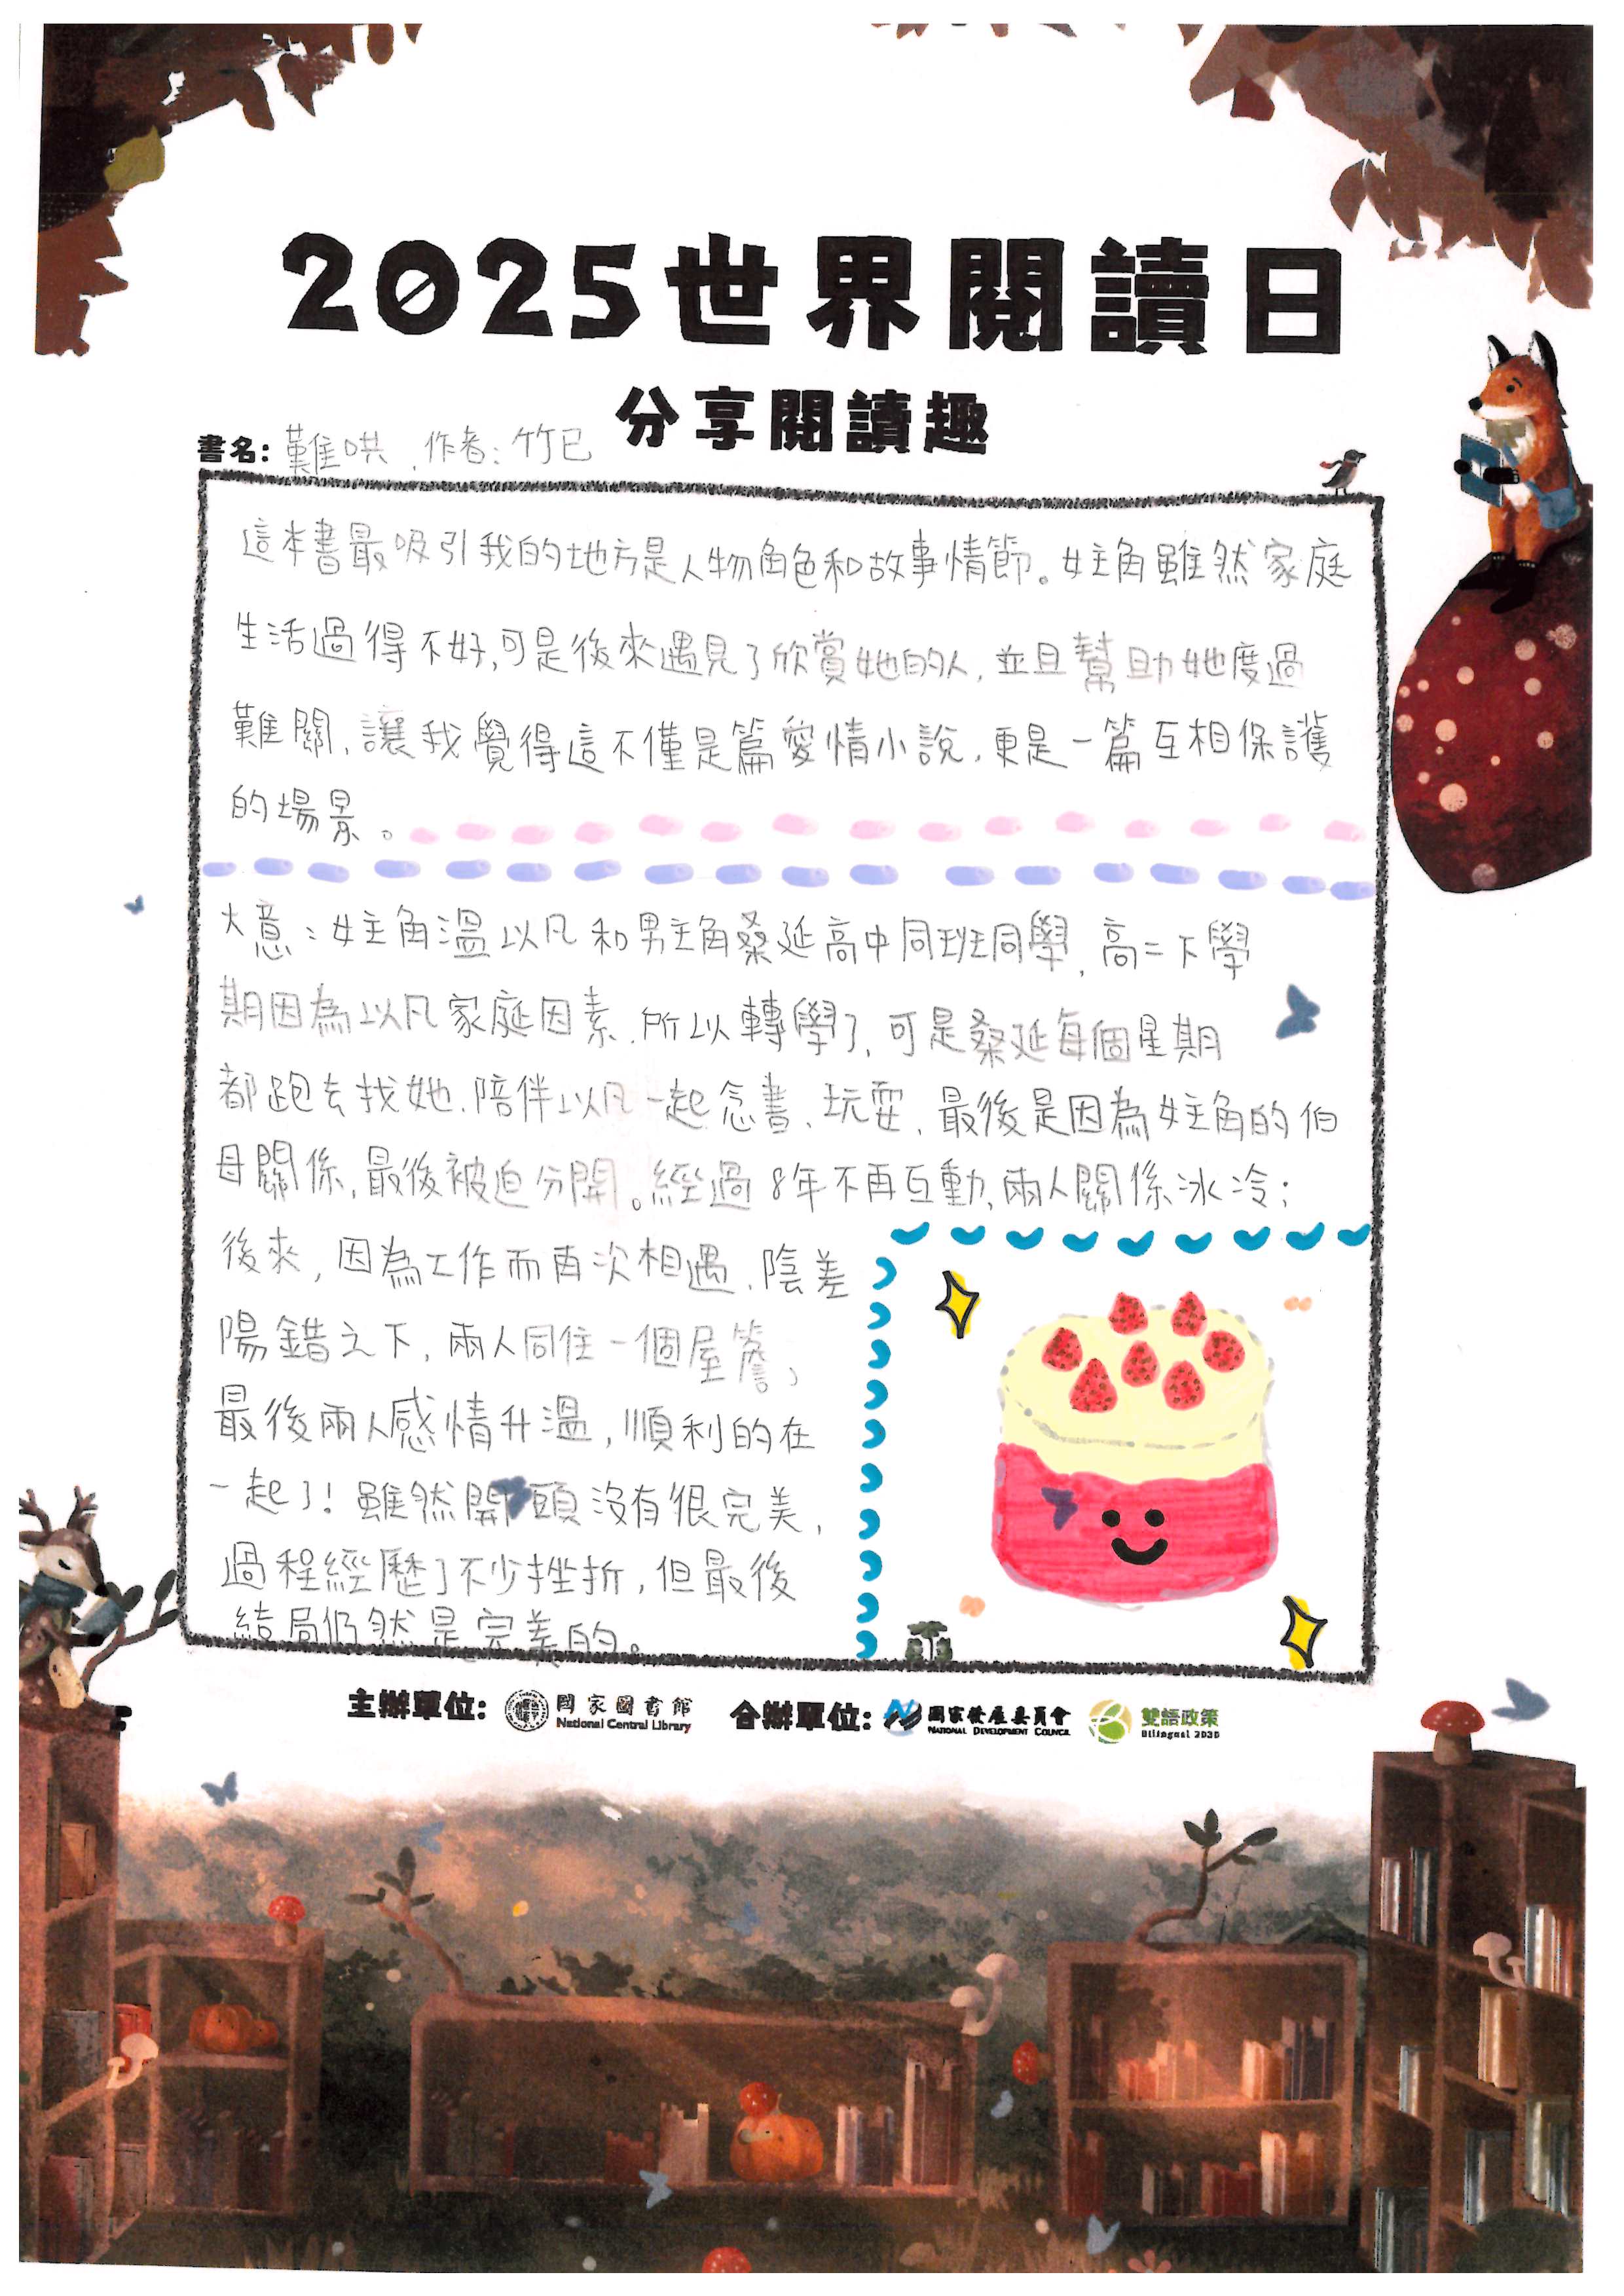 2025世界閱讀日
分享閱讀趣
書名：難哄，作者：竹已
這本書最吸引我的地方是人物角色和故事情節。女主角雖然家庭
生活過得不好，可是後來遇見了欣賞她的人，並且幫助她度過
難關，讓我覺得這不僅是篇愛情小說，更是一篇互相保護
的場景。
大意：女主角溫以凡和男主角桑延高中同班同學，高二下學
期因為以凡家庭因素，所以轉學了，可是桑延每個星期
都跑去找她，陪伴以凡一起念書、玩耍，最後是因為女主角的伯
母關係，最後被迫分開。經過8年不再互動，兩人關係冰冷；
後來，因為工作而再次相遇，陰差
陽錯之下，兩人同住一個屋簷，
最後兩人感情升溫，順利的在
一起了！雖然開頭沒有很完美，
過程經歷了不少挫折，但最後
結局仍然是完美的。
主辦單位：國家圖書館 National Central Library 合辦單位：國家發展委員會 NATIONAL DEVELOPMENT COUNCIL 雙語政策 Bilingual 2030